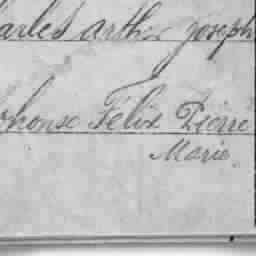 harles arthur joseph
phonse Felix Pierre
Marie